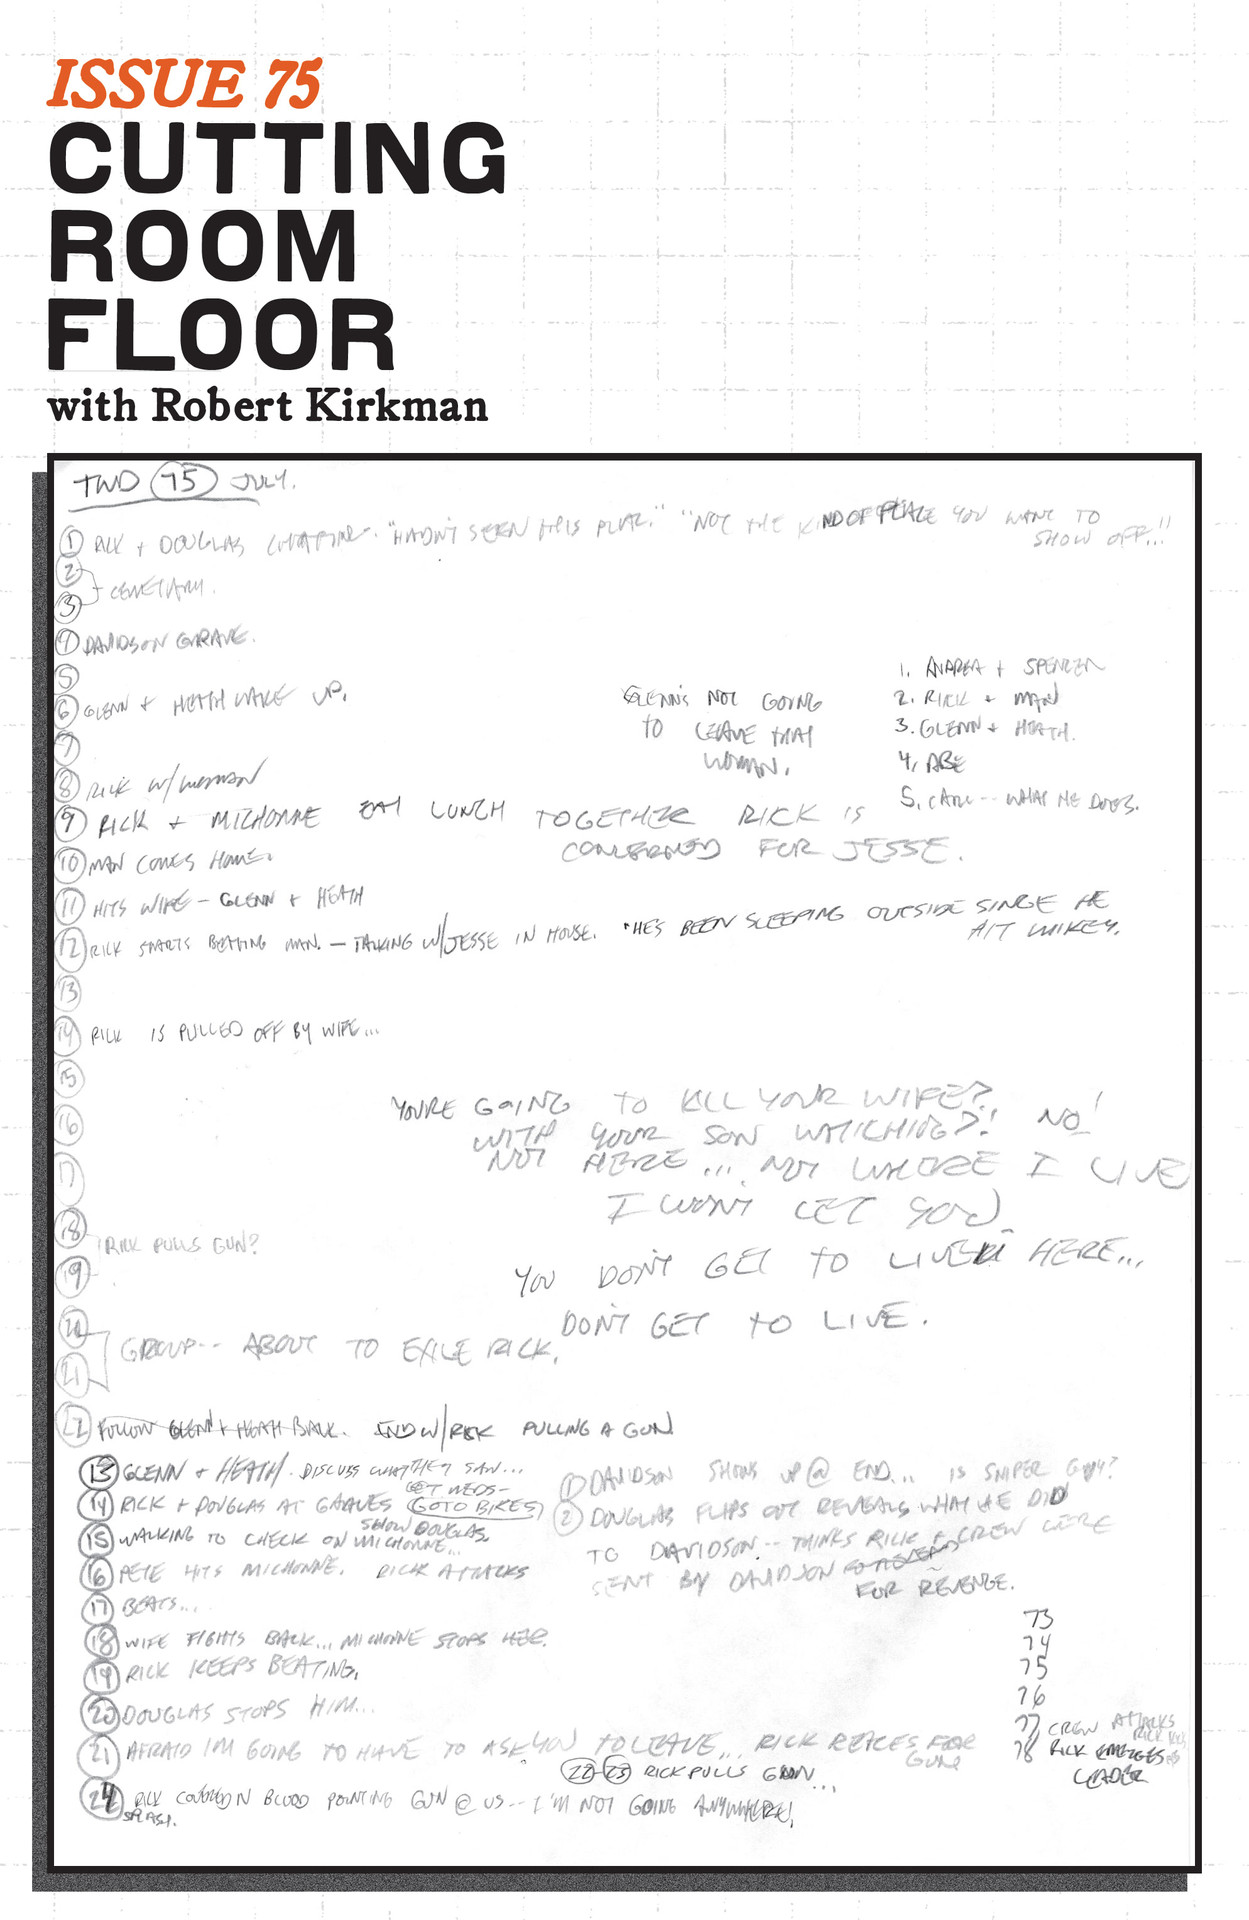 ISSUE 75
CUTTING
ROOM
FLOOR
with Robert Kirkman
TWD 75 JULY.
1 RICK + DOUGLAS CHATTING. "HADN'T SEEN THIS PLACE." "NOT THE KIND OF PLACE YOU WANT TO
SHOW OFF..."
2
3 CEMETARY.
4 DAVIDSON GRAVE.
5
6 GLENN + HEATH WAKE UP.
7
8 RICK W/ WOMAN
9 RICK + MICHONNE EAT LUNCH TOGETHER RICK IS
CONCERNED FOR JESSE.
10 MAN COMES HOME.
11 HITS WIFE - GLENN + HEATH
12 RICK STARTS BEATING MAN. - TALKING W/JESSE IN HOUSE. "HE'S BEEN SLEEPING OUTSIDE SINCE HE
HIT MIKEY.
GLENN'S NOT GOING
TO LEAVE THAT
WOMAN.
1. ANDREA + SPENCER
2. RICK + MAN
3. GLENN + HEATH.
4. ABE
5. CARL-- WHAT HE DOES.
13
14 RICK IS PULLED OFF BY WIFE...
15
16
17
YOU'RE GOING TO KILL YOUR WIFE?
WITH YOUR SON WATCHING?! NO!
NOT HERE... NOT WHERE I LIVE
I WON'T LET YOU.
18
RICK PULLS GUN?
19
YOU DON'T GET TO LIVE HERE...
DON'T GET TO LIVE.
20
21 GROUP-- ABOUT TO EXILE RICK.
22 FOLLOW GLENN + HEATH BACK. END W/RICK PULLING A GUN
13 GLENN + HEATH. DISCUSS WHAT THEY SAW...
GET MEDS-
14 RICK + DOUGLAS AT GRAVES GO TO BIKES
SHOW DOUGLAS
15 WALKING TO CHECK ON MICHONNE...
16 PETE HITS MICHONNE. RICK ATTACKS
17 BEATS...
18 WIFE FIGHTS BACK... MICHONNE STOPS HER.
19 RICK KEEPS BEATING.
20 DOUGLAS STOPS HIM...
21 AFRAID I'M GOING TO HAVE TO ASK YOU TO LEAVE... RICK REACHES FOR
GUN
22-23 RICK PULLS GUN...
24 RICK COVERED N BLOOD POINTING GUN @ US-- I'M NOT GOING ANYWHERE!
SPLASH.
1 DAVIDSON SHOWS UP @ END... IS SNIPER GUY?
2 DOUGLAS FLIPS OUT REVEALS WHAT HE DID
TO DAVIDSON-- THINKS RICK + CREW WERE
SENT BY DAVIDSON
FOR REVENGE.
73
74
75
76
77 CREW ATTACKS
78 RICK EMERGES AS
LEADER